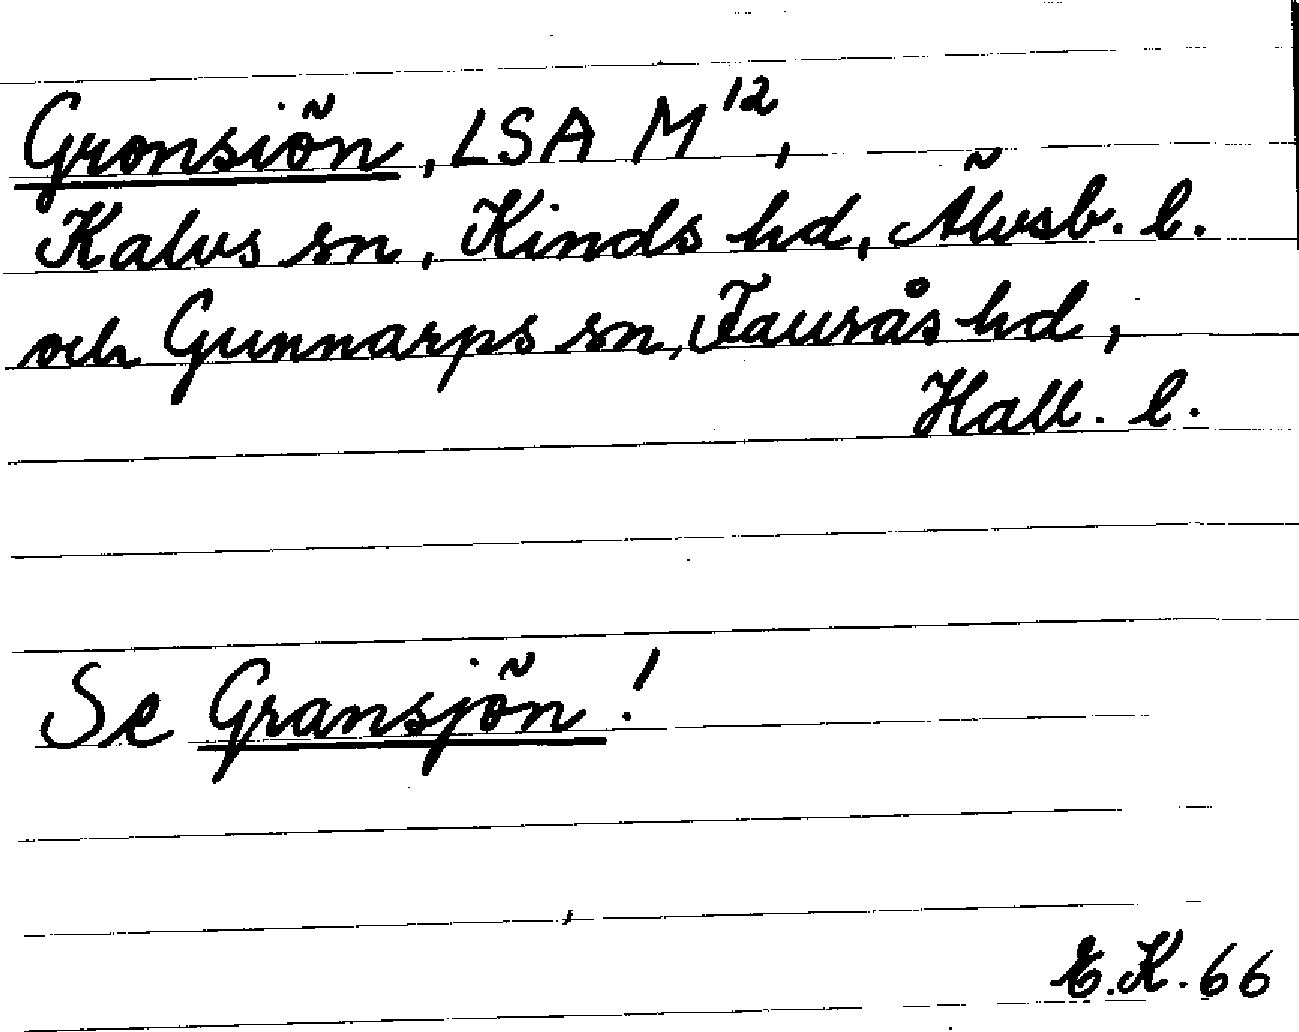 Gronsiön, LSA M¹²,
Kalvs sn, Kinds hd, Älvsb. l.
och Gunnarps sn, Faurås hd,
Hall. l.
Se Gransjön!
E.K. 66